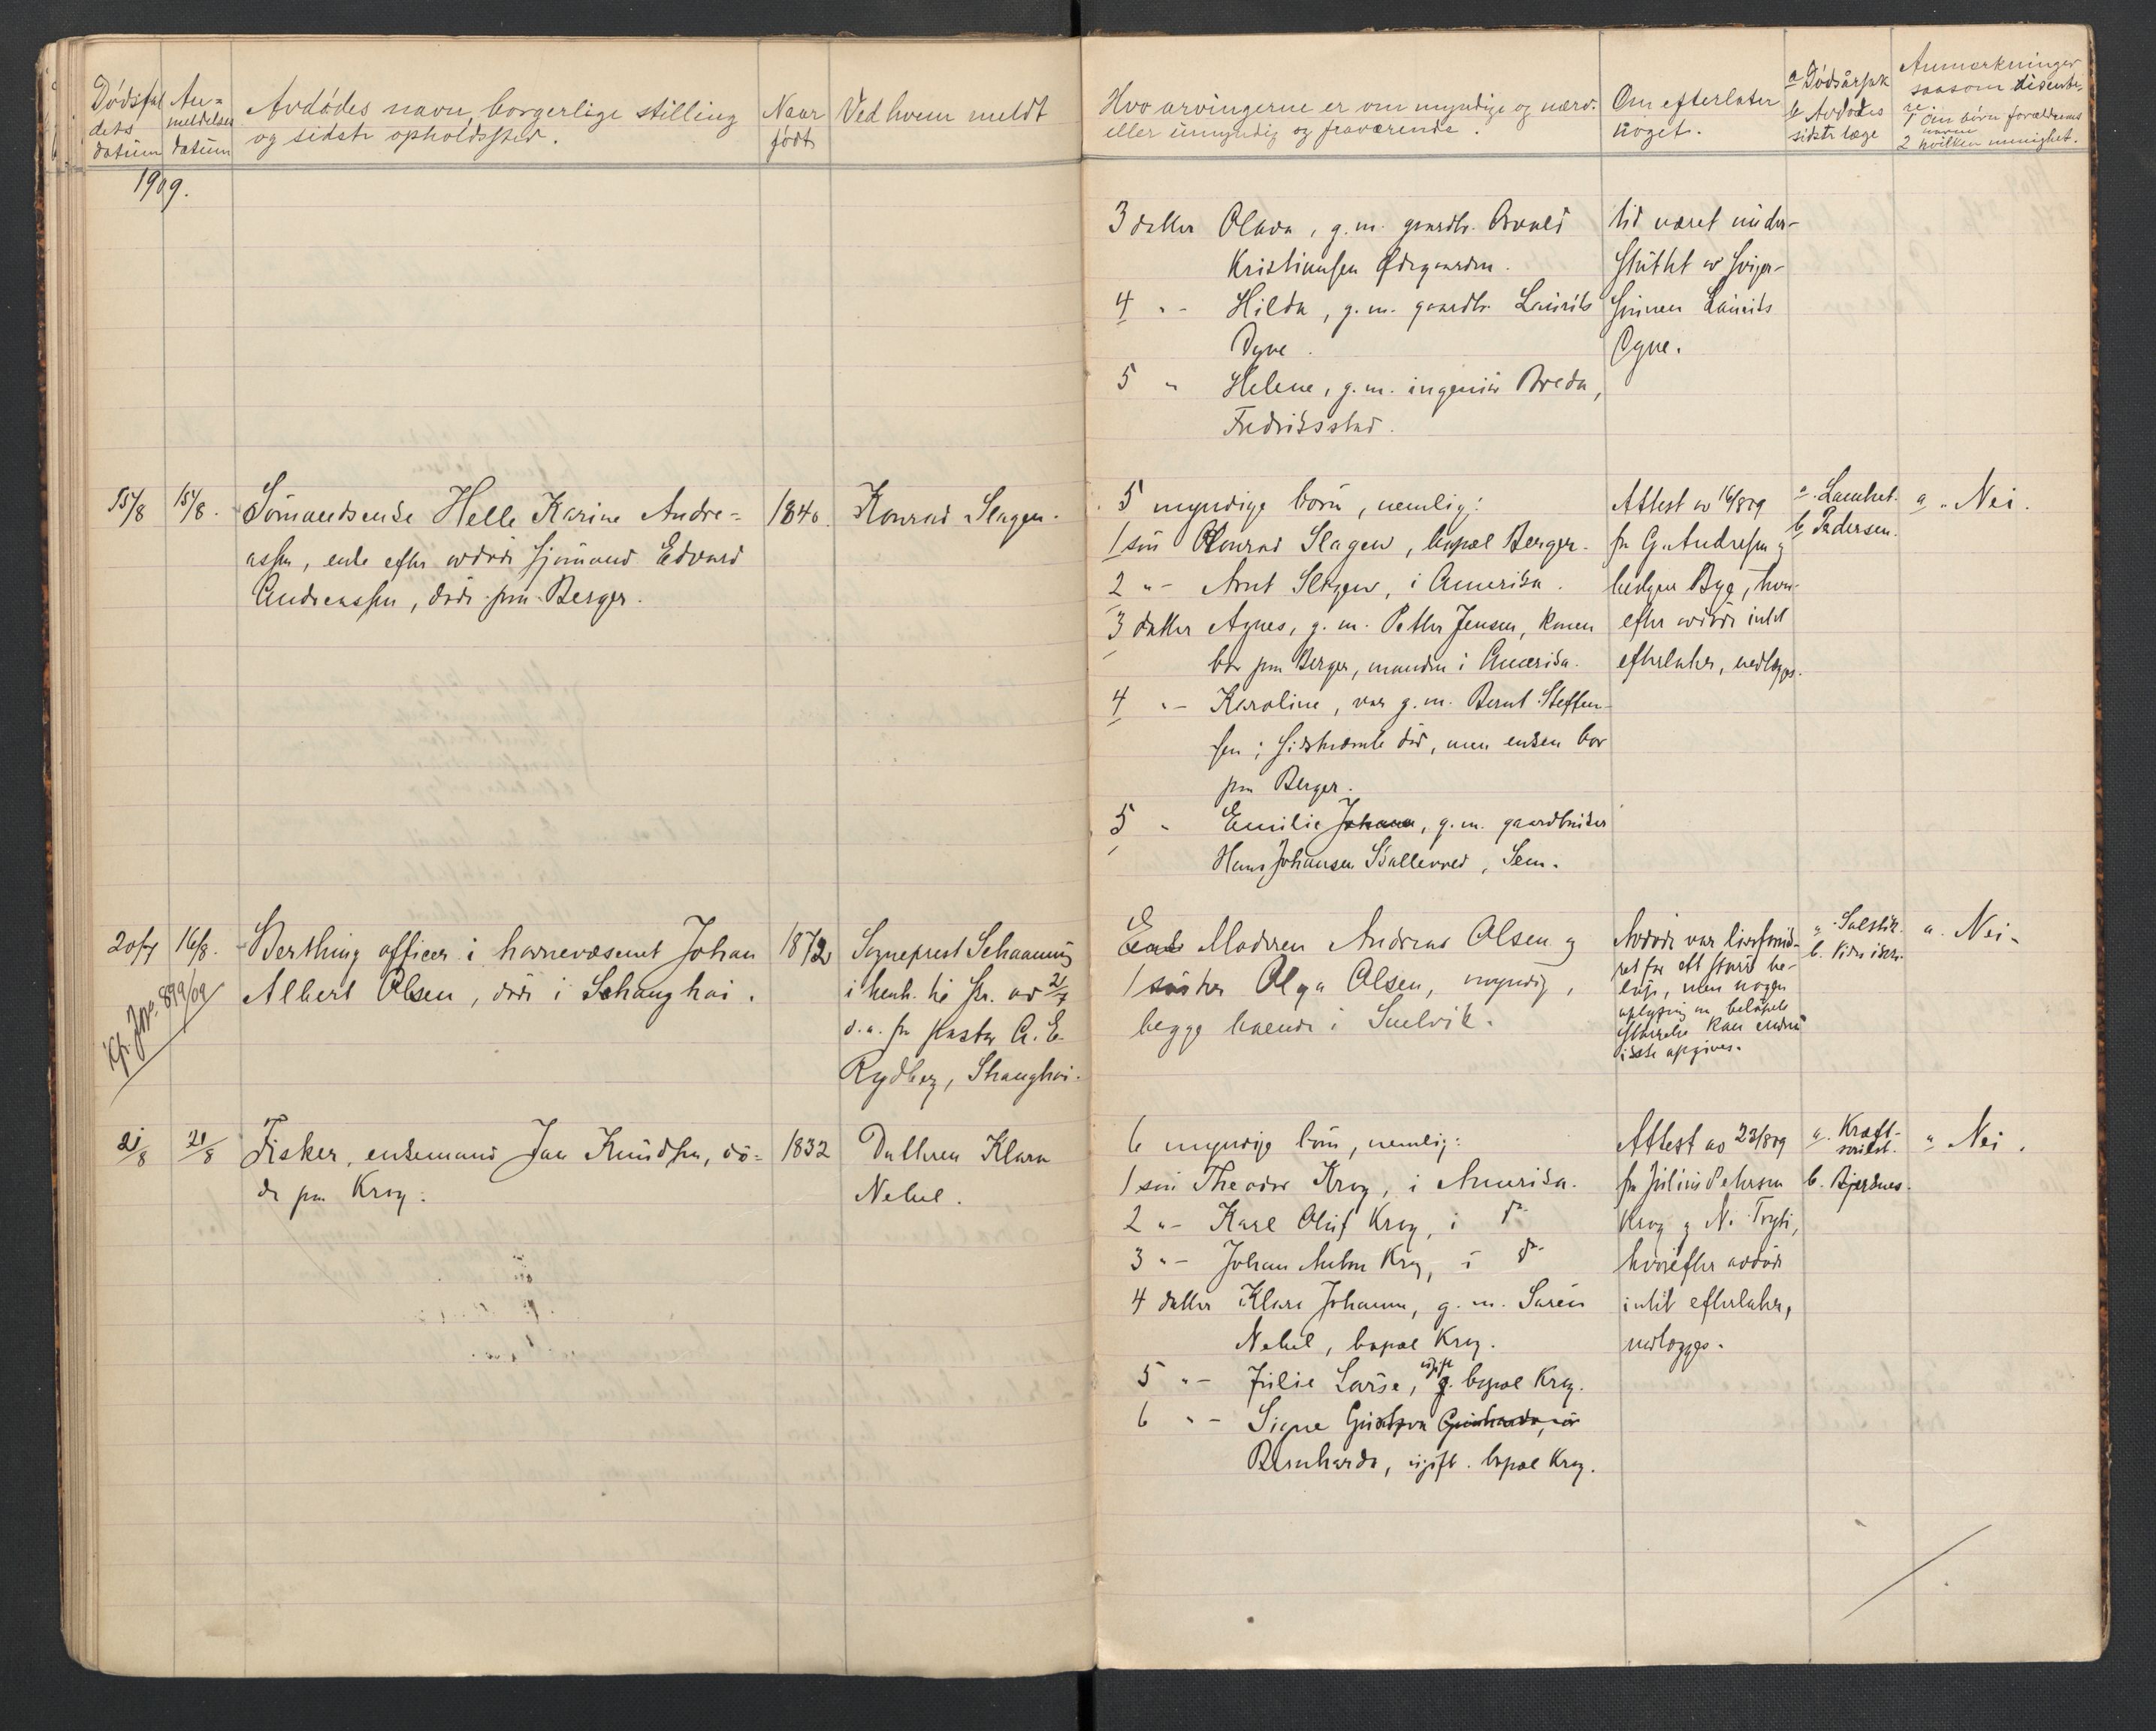 Dödsfal
dets
datüm
An=
meldelses
datüm
Avdödes navn, borgerlige stilling
og sidste opholdssted.
Naar
födt
Ved hvem meldt
Hvo arvingerne er om myndige og nærv.
eller ümyndig og fraværende.
Om efterlater
noget.
a Dödsårsak
b Avdödes
sidste læge
Anmærkninger
saasom disente-
re.
1 om börn forældrenes
navne
2 hvilken menighet.
1909.
3 datter Olava, g. m. gaardbr. Osvald
Kristiansen Ödegaarden.
4 " - Hilda, g. m. gaardbr. Laurits
Dyne.
5 " Helene, g. m. ingeniör Breda,
Fredriksstad.
tid været under-
stüttet av sviger-
sönnen Laurits
Dyne.
15/8
15/8.
Sömandsenke Helle Karine Andre=
assen, enke efter avdöde sjömand Edvard
Andreassen, döde paa Berger.
1840.
Konrad Slagen.
5 myndige börn, nemlig:
1 sön Konrad Slagen, bopæl Berger.
2 " - Arnt Slagen, i Amerika.
3 datter Agnes, g. m. Petter Jensen, konen
bor paa Berger, manden i Amerika.
4 " - Karoline, var g. m. Bernt Steffen-
sen; sidstnævnte död, men enken bor
paa Berger.
5 " Emilie Johana, g. m. gaardbruker
Hans Johansen Skallevold, Sem.
Attest av 16/8 09
fra G. Andresen og
Bye, hvor-
efter avdöde intet
efterlater, nedlægges.
a. Lamhet.
b. Pedersen.
a. Nei.
20/7
16/8.
Kfr. Jnr. 899/09
Berthing officer i havnevæsenet Johan
Albert Olsen, döde i Schanghai.
1872
Sogneprest Schaanning
i henh. til skr. av 21/7
d. a. fra pastor A. E.
Rydberg, Shanghai.
Enke Moderen Andrea Olsen og
1 söster Olga Olsen, myndig,
begge boende i Svelvik.
Avdöde var livsforsik-
ret for ett större be-
löp, men nogen
oplysning om belöpets
störrelse kan endnu
ikke opgives.
a. Solstik.
b. Vides ikke.
a. Nei.
21/8
21/8
Fisker, enkemand Jan Knudsen, dö=
de paa Krog.
1832
Datteren Klara
Nebel.
6 myndige börn, nemlig:
1 sön Theodor Krog, i Amerika.
2 " - Karl Oluf Krog, i do
3 " - Johan Anton Krog, i do
4 datter Klara Johanne, g. m. Sören
Nebel, bopæl Krog.
5 " - Julie Lovise, ugift g. bopæl Krog.
6 " - Signe Gustava
Bernharda, ugift. bopæl Krog.
Attest av 23/8 09
fra Julius Petersen
Krog og N. Trogli,
hvorefter avdöde
intet efterlater,
nedlægges.
a. Kræft-
b. Bjerknes.
a Nei.